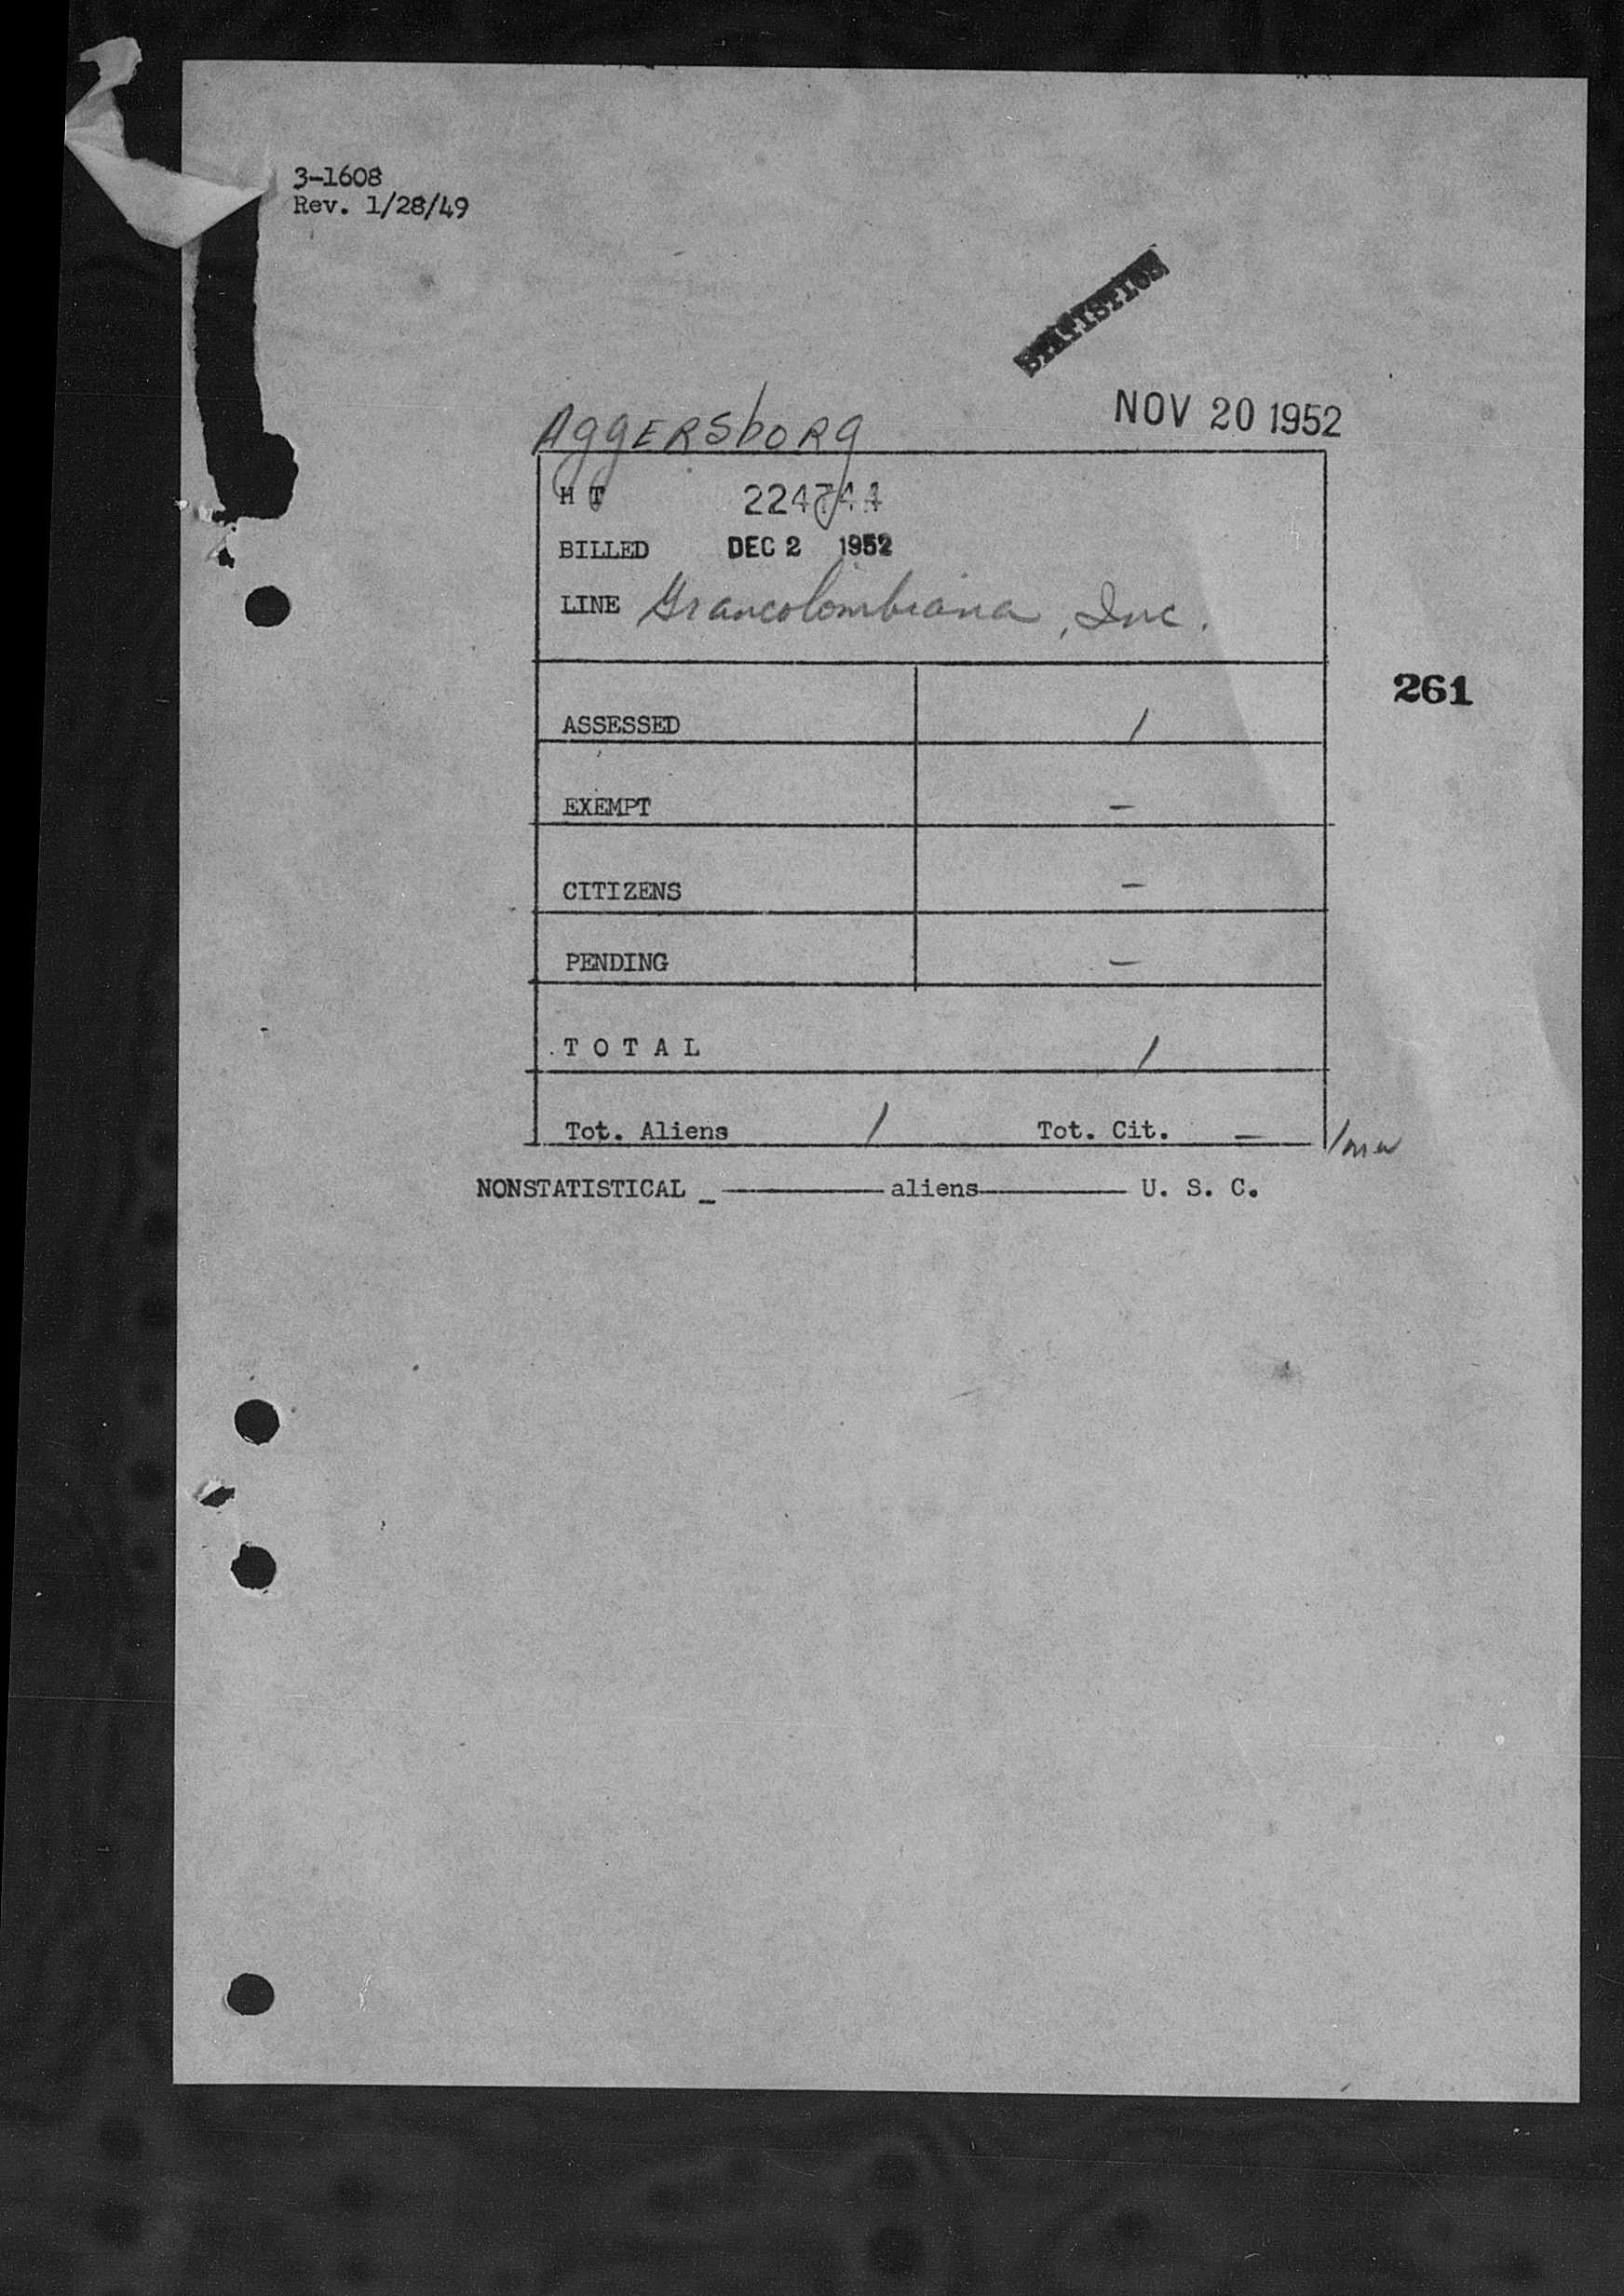 3-1608
Rev. 1/28/49
STATISTICS
NOV 20 1952
Aggersborg
H T
BILLED DEC 2 1952
LINE Grancolombiana, Inc.
261
ASSESSED 1
EXEMPT –
CITIZENS –
PENDING –
TOTAL 1
Tot. Aliens 1 Tot. Cit. –
NONSTATISTICAL _ ——— aliens ——— U. S. C.